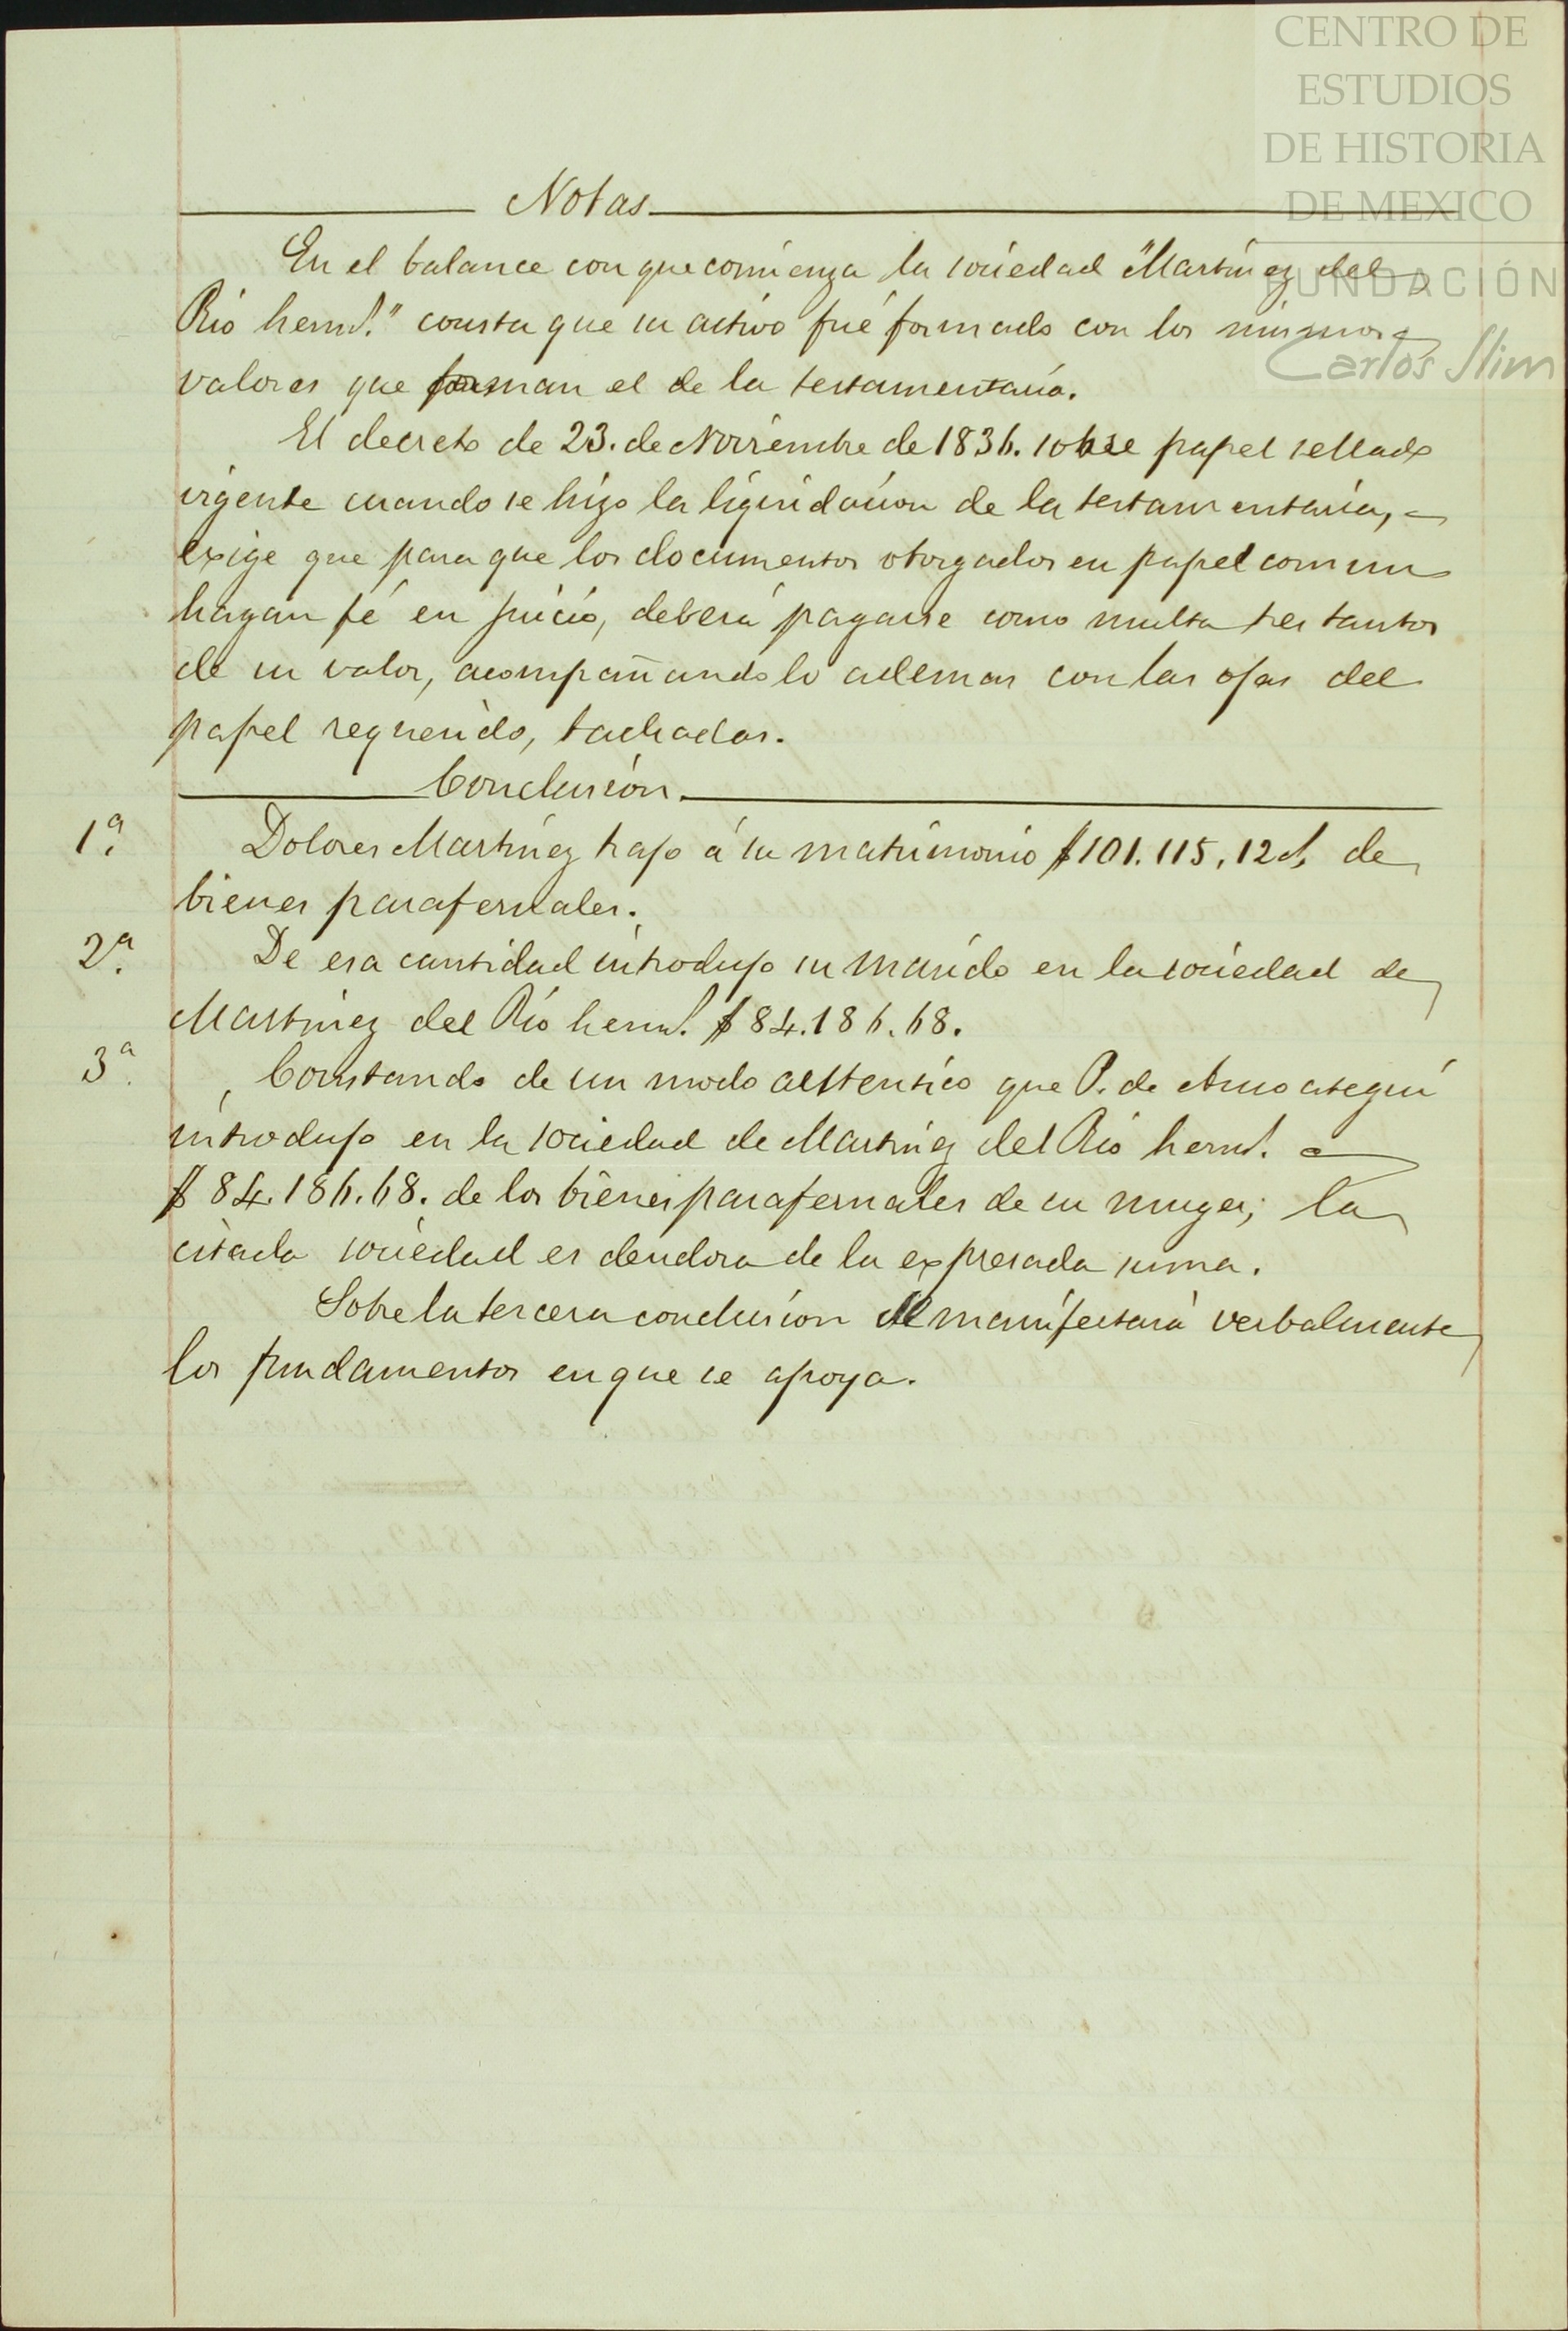 CENTRO DE
ESTUDIOS
DE HISTORIA
DE MEXICO
FUNDACIÓN
Carlos Slim
Notas
En el balance con que comienza la sociedad "Martínez del
Río herms." consta que su activo fué formado con los mismos
valores que forman el de la testamentaría.
El decreto de 23. de Noviembre de 1836. sobre papel sellado
vigente cuando se hizo la liquidacion de la testamentaría,
exige que para que los documentos otorgados en papel comun
hagan fé en juicio, deberá pagarse como multa tres tantos
de su valor, acompañandolo ademas con las ojas del
papel requerido, tachadas.
Conclusión.
1ª. Dolores Martínez trajo á su matrimonio $101.115,12 cs, de
bienes parafernales.
2ª. De esa cantidad introdujo su marido en la sociedad de
Martínez del Río herms. $84.186.68.
3ª. Constando de un modo auttentico que P. de Ansoategui
introdujo en la sociedad de Martínez del Río herms.
$84.186.68. de los bienes parafernales de su muger; la
citada sociedad es deudora de la expresada suma.
Sobre la tercera conclusion se manifestará verbalmente
los fundamentos en que se apoya.